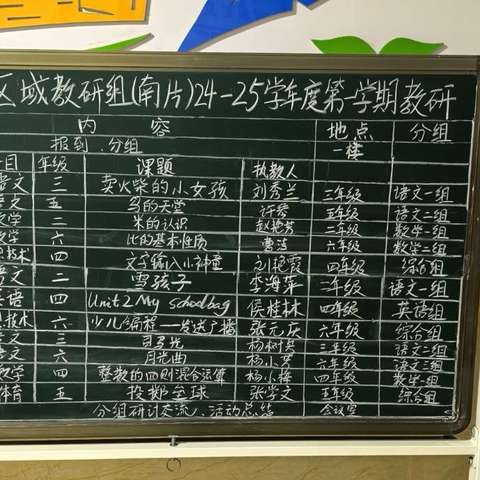 区域教研组(南片)24-25学年度第一学期教研
内 容 地点 分组
报到.分组 一楼
目 年级 课题 执教人
语文 三 卖火柴的小女孩 刘秀兰 三年级 语文一组
文 五 鸟的天堂 许琴 五年级 语文二组
数学 二 米的认识 赵艳芳 二年级 数学一组
数学 六 比的基本性质 曹洁 六年级 数学二组
技术 四 文字输入小神童 刘艳霞 四年级 综合组
语文 二 雪孩子 李海萍 二年级 语文一组
英语 四 Unit2 My schoolbag 侯桂林 四年级 英语组
技术 六 少儿编程——发送广播 张元庆 六年级 综合组
文 三 司马光 杨树 三年级 语文二组
文 六 月光曲 杨小 六年级 语文三组
数学 四 整数的四则混合运算 杨小梅 四年级 数学一组
体育 五 投掷垒球 张学文 五年级 综合组
分组研讨交流、活动总结 会议室